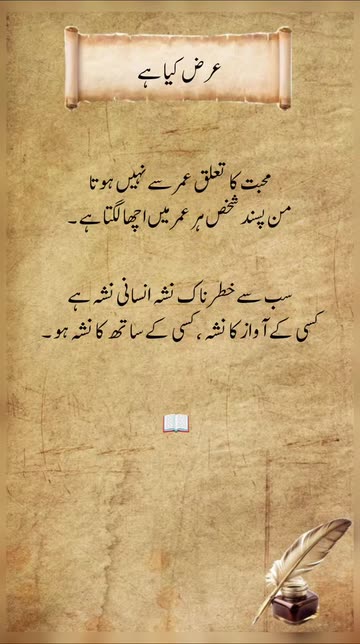 عرض کیا ہے
محبت کا تعلق عمر سے نہیں ہوتا
من پسند شخص ہر عمر میں اچھا لگتا ہے۔
سب سے خطرناک نشہ انسانی نشہ ہے
کسی کے آواز کا نشہ، کسی کے ساتھ کا نشہ ہو۔